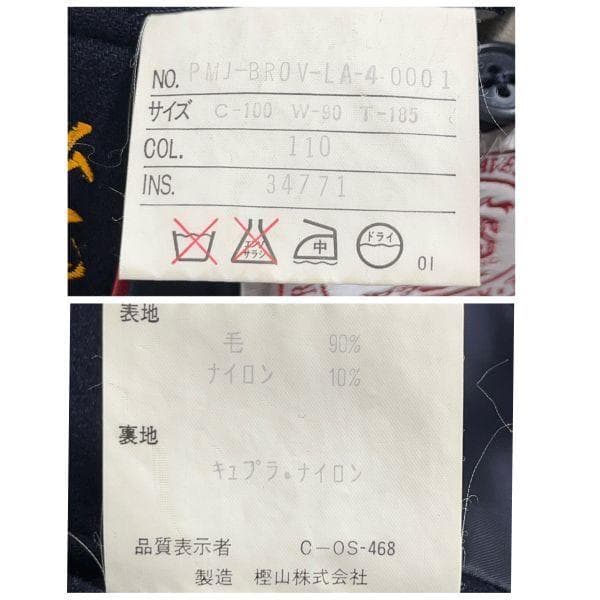 NO. PMJ-BROV-LA-4 0001
サイズ C-100 W-90 T-185
COL. 110
INS. 34771
エンソ サラシ 中 ドライ
01
表地
毛 90%
ナイロン 10%
裏地
キュプラ。ナイロン
品質表示者 C-OS-468
製造 樫山株式会社